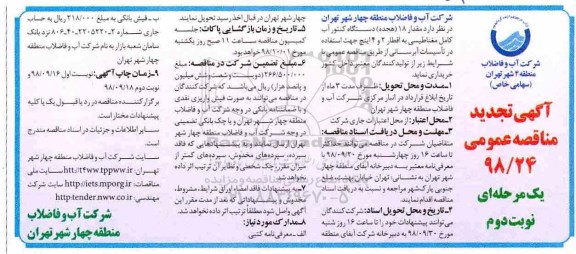 شرکت آب و فاضلاب
منطقه ۴ شهر تهران
(سهامی خاص)
آگهی تجدید
مناقصه عمومی
۹۸/۲۴
یک مرحله‌ای
نوبت دوم
شرکت آب و فاضلاب منطقه چهار شهر تهران
در نظر دارد مقدار ۱۸ (هجده) دستگاه کنتور آب
کامل مغناطیسی به اقطار ۲ و ۴ اینچ جهت استفاده
در تأسیسات آبرسانی از طریق مناقصه عمومی با
شرایط زیر از تولیدکنندگان معتبر داخل کشور
خریداری نماید.
۱ـ مدت و محل تحویل: ظرف مدت ۳ ماه از
تاریخ ابلاغ قرارداد در انبار مرکزی شرکت آب و
فاضلاب منطقه چهار شهر تهران
۲ـ محل اعتبار: از محل اعتبارات جاری شرکت
۳ـ مهلت و محل دریافت اسناد مناقصه:
متقاضیان شرکت در مناقصه می‌توانند حداکثر
تا ساعت ۱۶ روز چهارشنبه مورخ ۹۸/۰۹/۲۰ با
معرفی‌نامه معتبر به دبیرخانه آبفای منطقه چهار
شهر تهران به نشانی: تهران خیابان بهشت ضلع
جنوبی پارک‌شهر مراجعه و نسبت به دریافت اسناد
مناقصه اقدام نمایند.
۴ـ تاریخ و محل تحویل اسناد: شرکت‌کنندگان
می‌توانند پیشنهادات خود را تا ساعت ۱۶ روز شنبه
مورخ ۹۸/۰۹/۳۰ به دبیرخانه شرکت آبفای منطقه
چهار شهر تهران در قبال اخذ رسید تحویل نمایند.
۵ـ تاریخ و زمان بازگشایی پاکات: جلسه
کمیسیون مناقصه ساعت ۱۱ صبح روز یکشنبه
مورخ ۹۸/۱۰/۰۱ می‌باشد.
۶ـ مبلغ تضمین شرکت در مناقصه: مبلغ
۲۶۶/۵۰۰/۰۰۰ (دویست و شصت و شش میلیون
و پانصد هزار) ریال می‌باشد که شرکت‌کنندگان
در مناقصه می‌توانند به صورت فیش واریزی نقدی
و یا ضمانتنامه بانکی در وجه شرکت آب و فاضلاب
منطقه چهار شهر تهران و یا چک بانکی تضمینی
در وجه شرکت آب و فاضلاب منطقه چهار شهر
تهران ارسال نمایند. به پیشنهادهایی که فاقد
سپرده، سپرده‌های مخدوش، سپرده‌های کمتر از
میزان مقرر، چک شخصی و نظایر آن ترتیب اثر داده
نخواهد شد.
۷ـ به پیشنهادات فاقد امضا، اوراق شرایط، مشروط،
مخدوش و پیشنهاداتی که بعد از مدت مقرر این
آگهی واصل شود مطلقاً ترتیب اثر داده نخواهد شد.
۸ـ مدارک مورد نیاز:
الف ـ معرفی‌نامه کتبی
ب ـ فیش بانکی به مبلغ ۲۱۸/۰۰۰ ریال به حساب
سامان شعبه بازار به نام شرکت آب و فاضلاب منطقه
چهار شهر تهران
۹ـ زمان چاپ آگهی: نوبت اول ۹۸/۰۹/۱۶ و
نوبت دوم ۹۸/۰۹/۱۸
برگزارکننده مناقصه در رد یا قبول یک یا کلیه
پیشنهادات مختار است.
سایر اطلاعات و جزئیات در اسناد مناقصه مندرج
است.
سایت شرکت آب و فاضلاب منطقه چهار شهر
تهران: سایت ملی
مناقصات: http://iets.mporg.ir سایت شرکت
مهندسی: http:tender.nww.co.ir
شرکت آب و فاضلاب
منطقه چهار شهر تهران